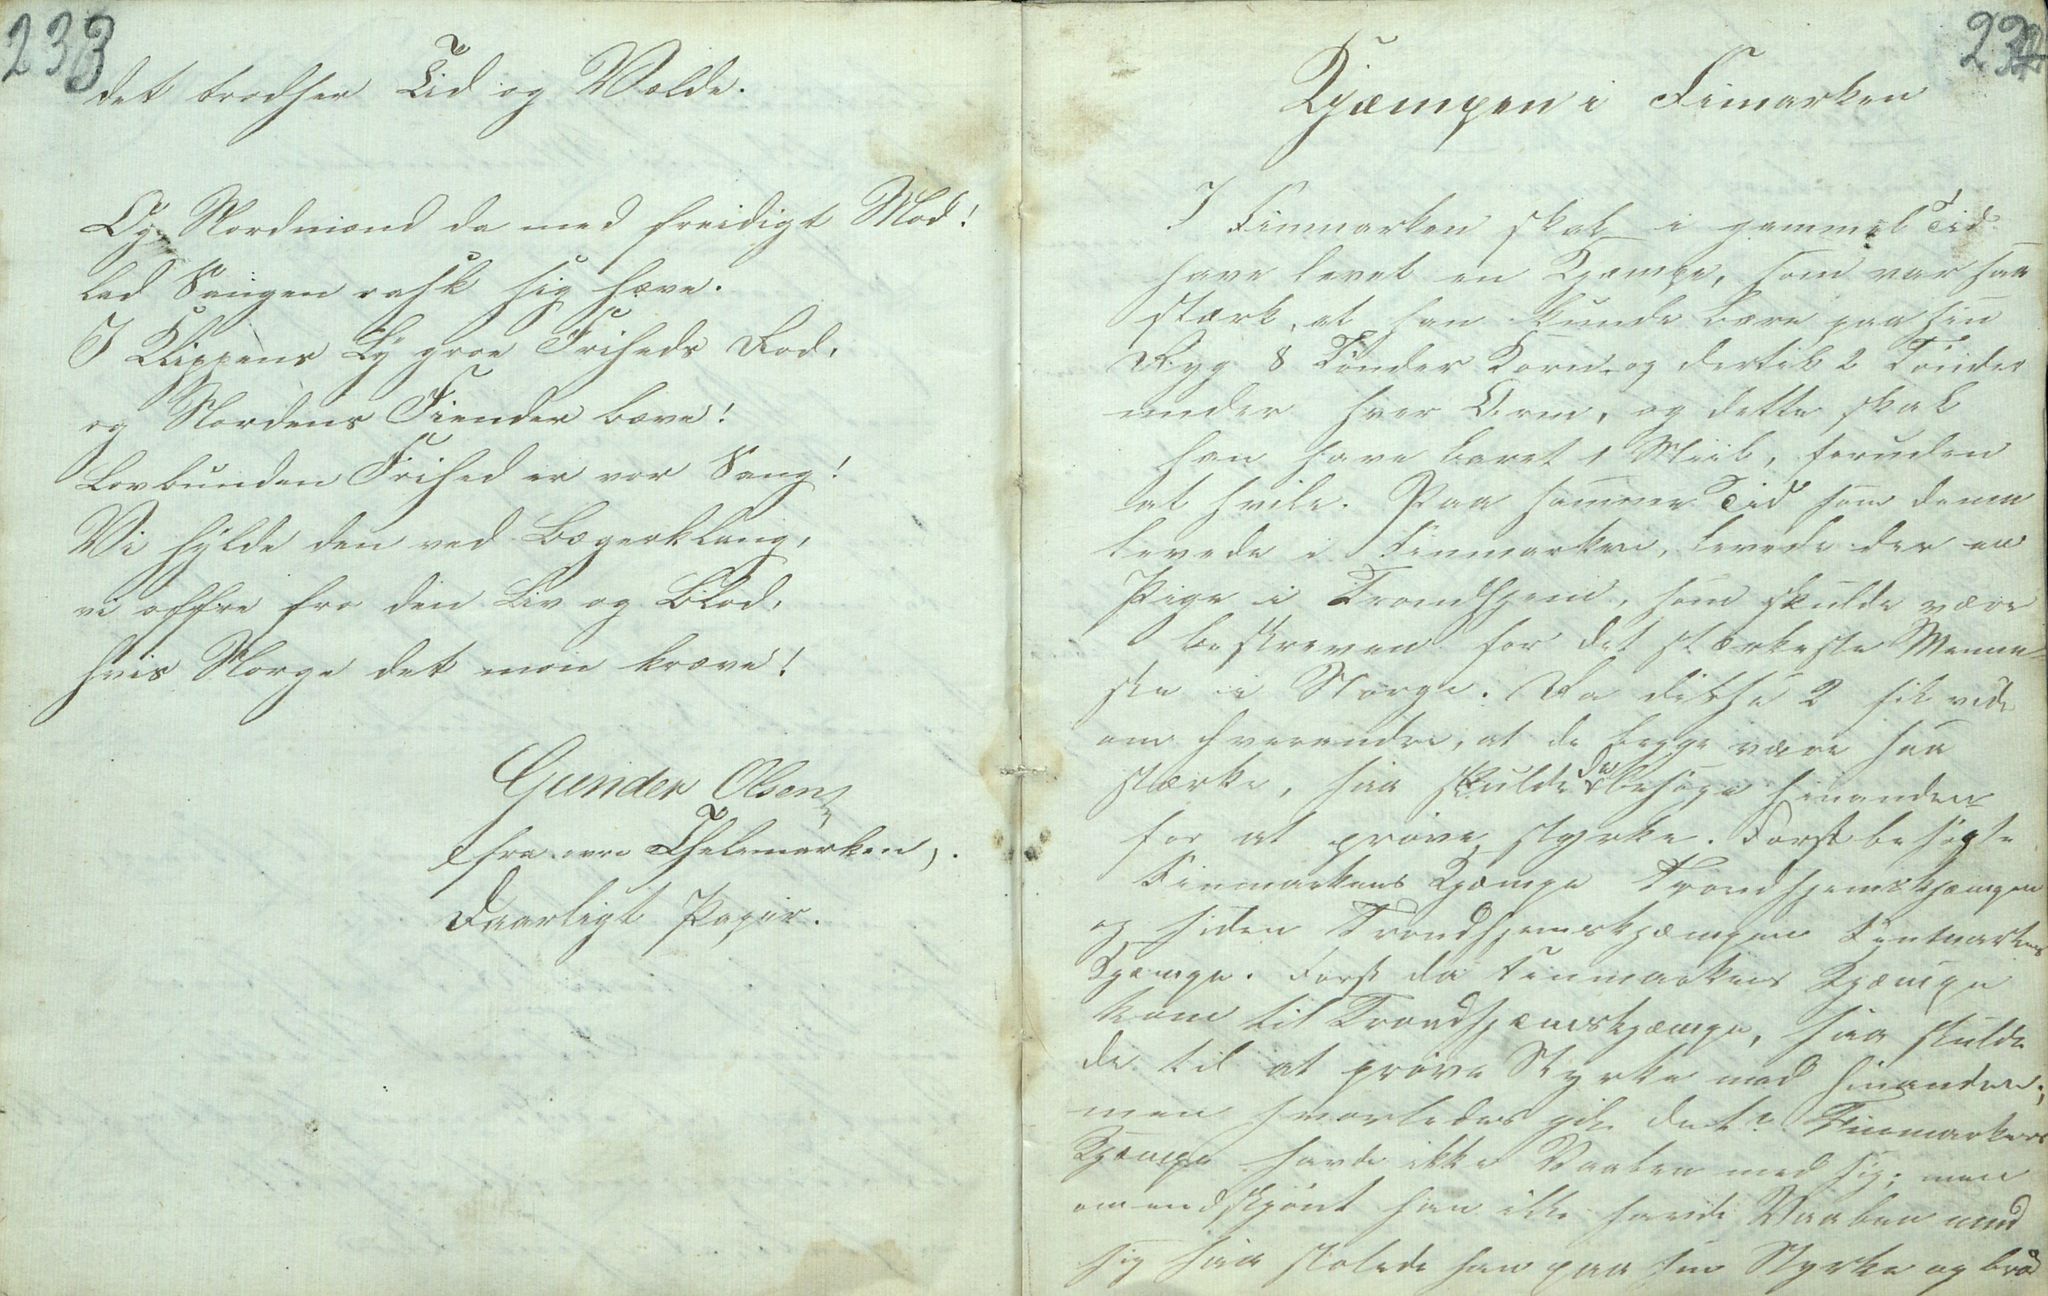 233
det trodser Tid og Vælde.
Og Nordmænd da med freidigt Mod!
lad Sangen rask sig hæve.
I Klippens Ly groe Friheds Rod,
og Nordens Fiender bæve!
Lovbunden Frihed er vor Sang!
Vi hylde den ved Bægerklang,
vi offre fro den Liv og Blod,
hvis Norge det mon kræve!
Gunder Olsen
fra øvre Thelemarken,.
Daarligt Papir.
234
Kjæmpen i Fimarken
I Finmarken skal i gammel Tid
have levet en Kjæmpe, som var saa
stærk, at han kunde bære paa sin
Ryg 8 Tønder Korn og dertil 2 Tønder
under hver Arm, og dette skal
han have baret 1 Miil, foruden
at hvile. Paa samme Tid som denne
levede i Finmarken, levede der en
Pige i Trondhjem, som skulde være
beskreven for det stærkeste Menne-
ske i Norge. Da disse 2 fik vide
om hverandre, at de begge være saa
stærke, saa skulde de besøge hinanden
for at prøve styrke. Først besøgte
Finmarkens Kjæmpe Trondhjemskjæmpen
og siden Trondhjemskjæmpen Finmarkens
Kjæmpe. Først da Finmarkens Kjæmpe
kom til Trondhjemskjæmpe, saa skulde
de til at prøve Styrke med hinanden;
men hvorledes gik det? Finmarkens
Kjæmpe havde ikke Vaaben med sig; men
omendskjønt han ikke havde Vaaben med
sig saa stolede han paa sin Styrke og brød